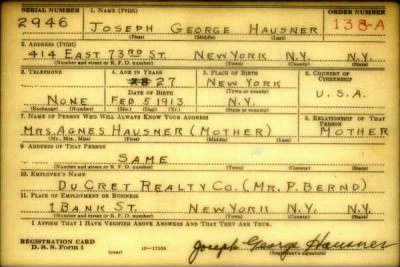 SERIAL NUMBER 1. NAME (Print) ORDER NUMBER
2946 JOSEPH GEORGE HAUSNER 138-A
(First) (Middle) (Last)
2. ADDRESS (Print)
414 EAST 73RD ST. NEW YORK N.Y. N.Y.
(Number and street or R. F. D. number) (Town) (County) (State)
3. TELEPHONE 4. AGE IN YEARS 5. PLACE OF BIRTH 6. COUNTRY OF CITIZENSHIP
28 27 NEW YORK
DATE OF BIRTH (Town or county) U.S.A.
NONE FEB 5 1913 N.Y.
(Exchange) (Number) (Mo.) (Day) (Yr.) (State or country)
7. NAME OF PERSON WHO WILL ALWAYS KNOW YOUR ADDRESS 8. RELATIONSHIP OF THAT PERSON
MRS. AGNES HAUSNER (MOTHER) MOTHER
(Mr., Mrs., Miss) (First) (Middle) (Last)
9. ADDRESS OF THAT PERSON
SAME
(Number and street or R. F. D. number) (Town) (County) (State)
10. EMPLOYER'S NAME
DU CRET REALTY CO. (MR. P. BERND)
11. PLACE OF EMPLOYMENT OR BUSINESS
1 BANK ST. NEW YORK N.Y. N.Y.
(Number and street or R. F. D. number) (Town) (County) (State)
I AFFIRM THAT I HAVE VERIFIED ABOVE ANSWERS AND THAT THEY ARE TRUE.
REGISTRATION CARD
D. S. S. Form 1 Joseph George Hausner
(Registrant's signature)